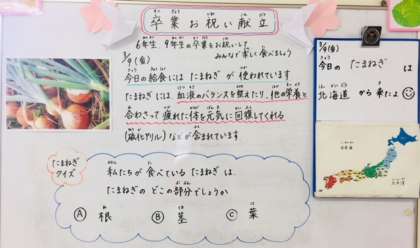 卒業お祝い献立
6年生 9年生の卒業をお祝いして
みんなで楽しく食べましょう
3/9(金)
今日の給食には たまねぎ が 使われています
たまねぎ には 血液のバランスを整えたり、他の栄養と
合わさって 疲れた体を元気に回復してくれる
(硫化アリル) などが 含まれています
たまねぎ
クイズ
私たちが 食べている たまねぎ は、
たまねぎの どこの部分でしょうか
Ⓐ 根 Ⓑ 茎 Ⓒ 葉
3/9(金)
今日の たまねぎ は
北海道 から 来たよ